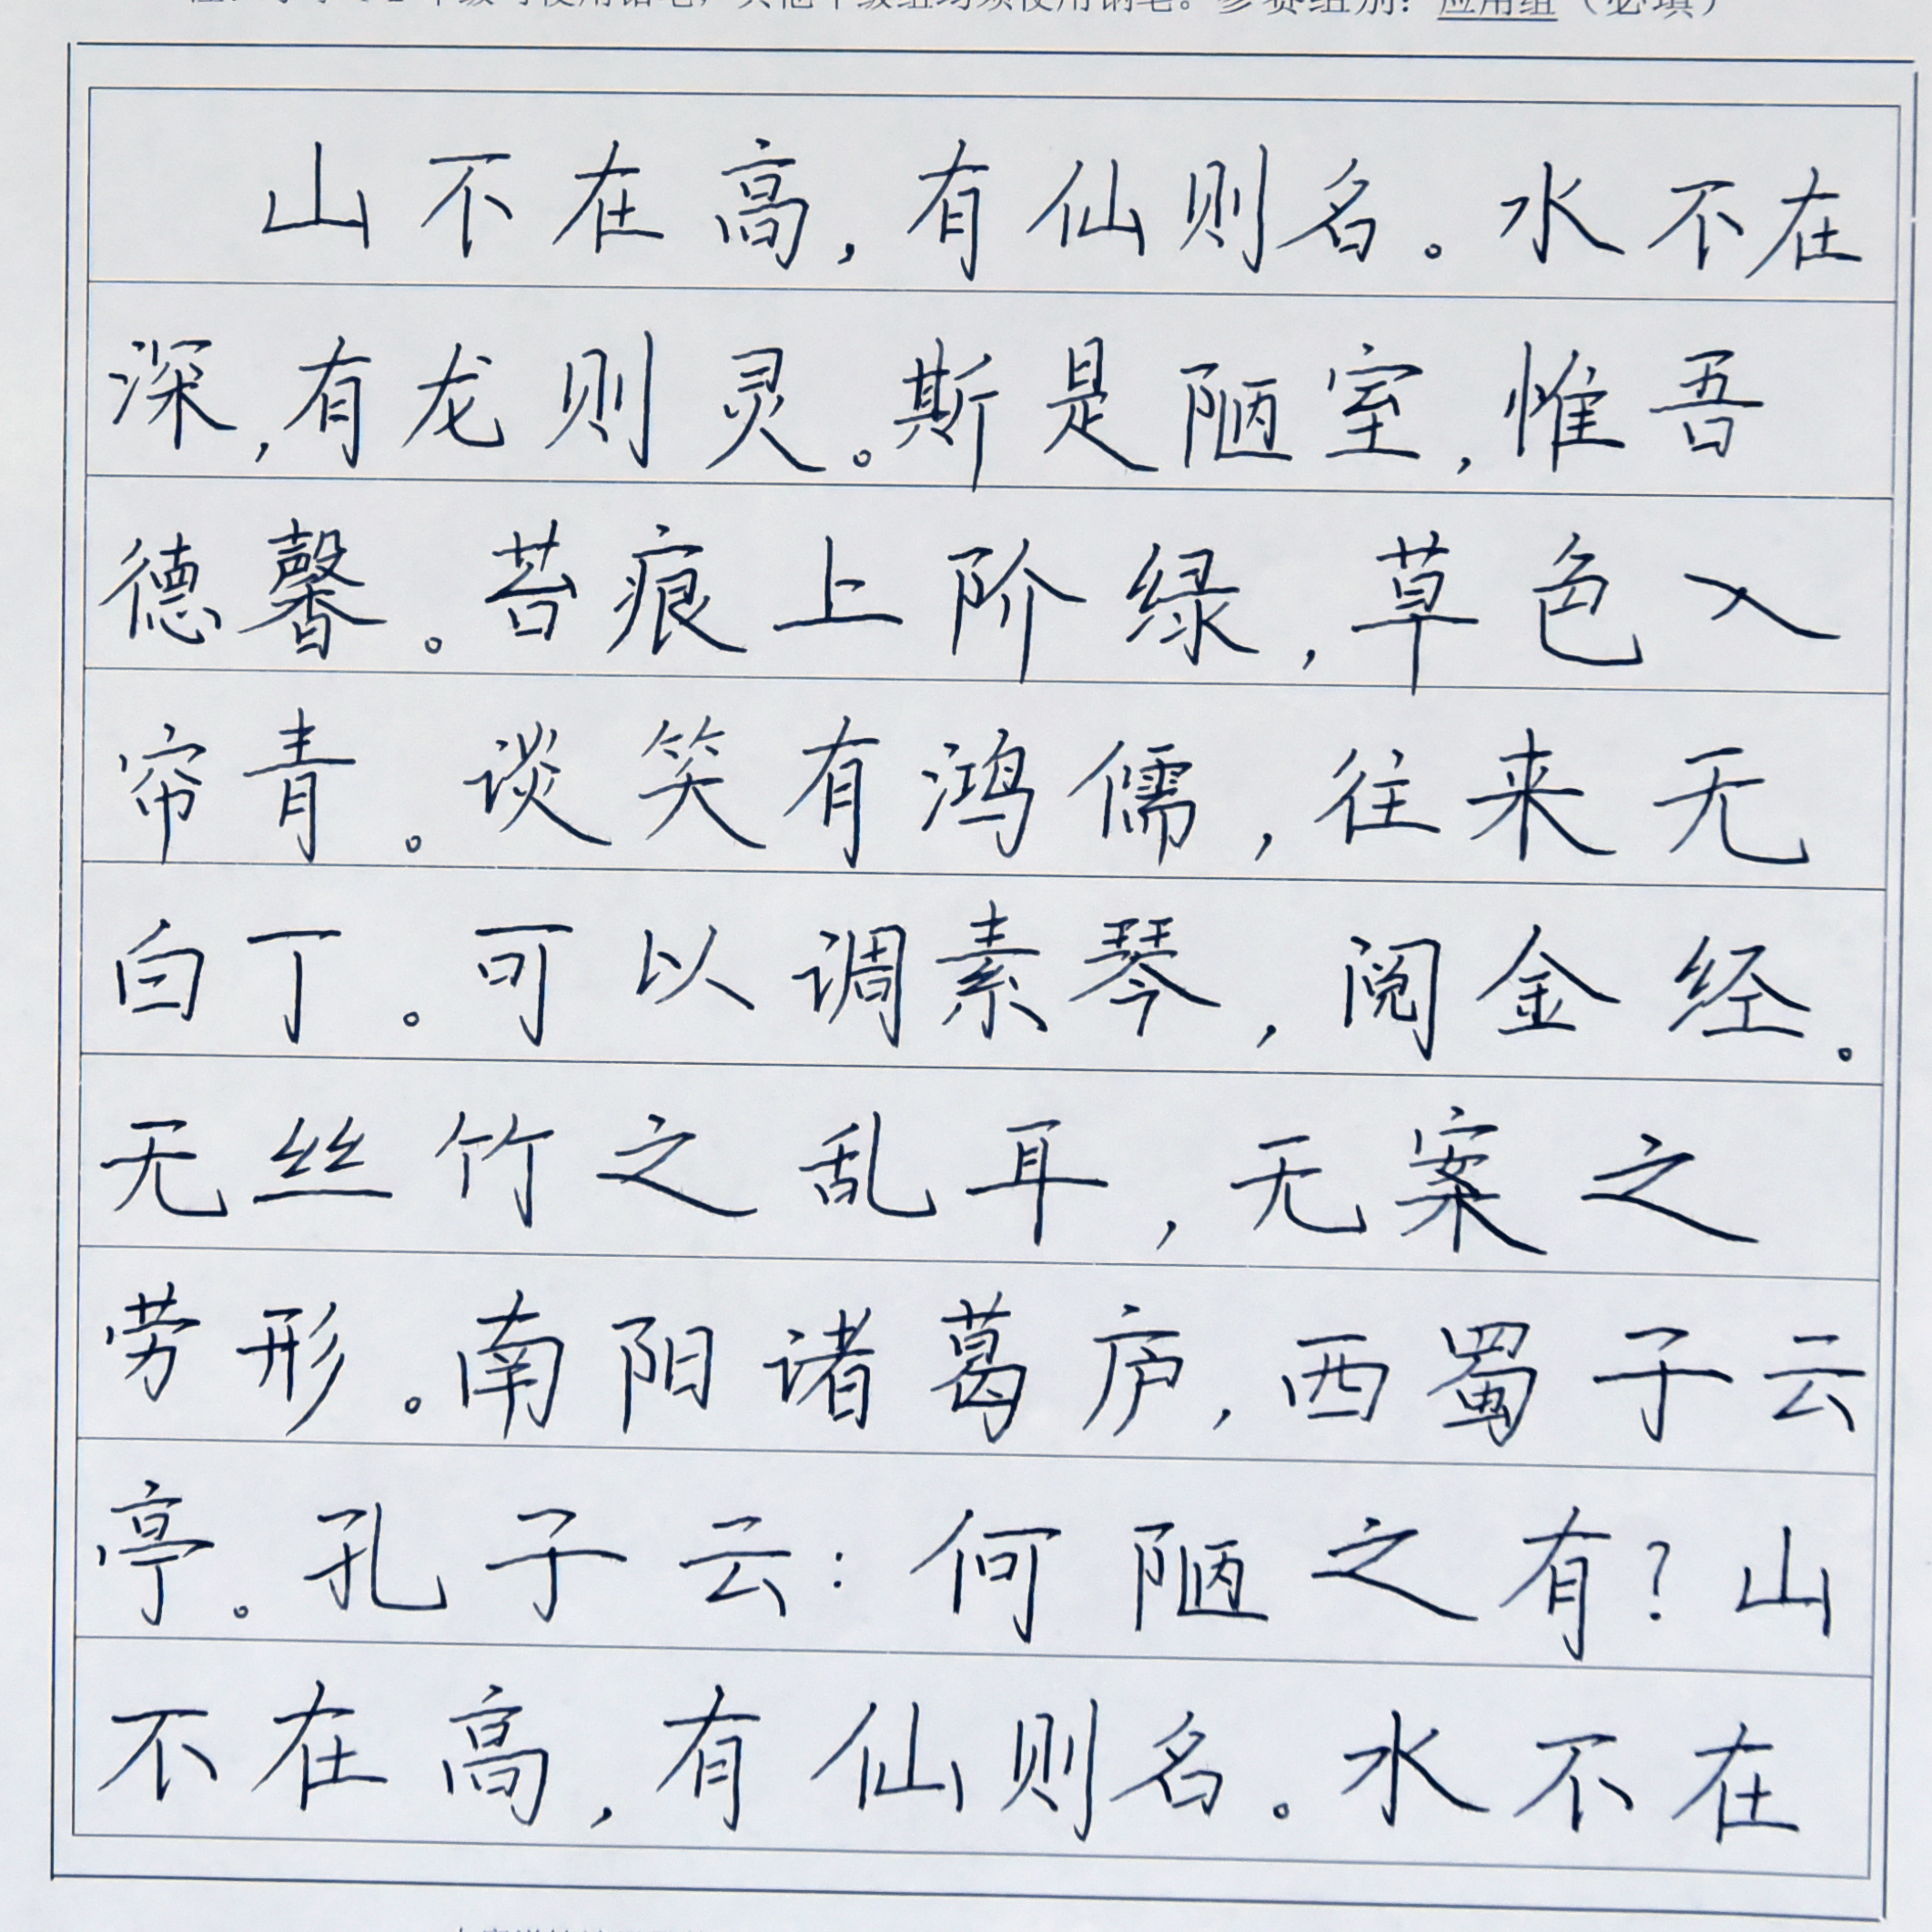 年级可使用铅笔，其他年级组均须使用钢笔。参赛组别：应用组（必填）
山不在高，有仙则名。水不在
深，有龙则灵。斯是陋室，惟吾
德馨。苔痕上阶绿，草色入
帘青。谈笑有鸿儒，往来无
白丁。可以调素琴，阅金经。
无丝竹之乱耳，无案之
劳形。南阳诸葛庐，西蜀子云
亭。孔子云：何陋之有？山
不在高，有仙则名。水不在